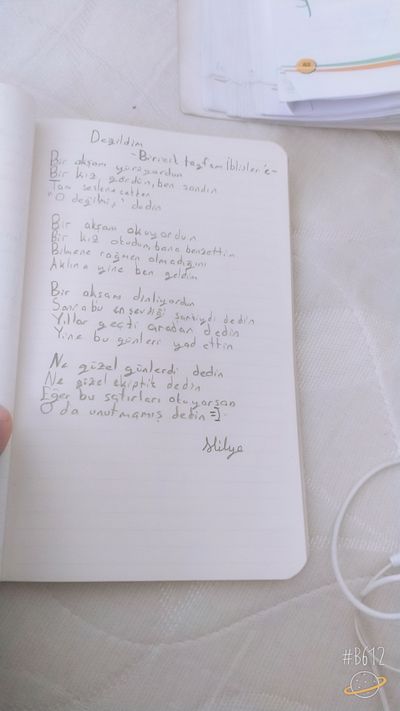 Değildim
-Biricik tayfam İblisler'e-
Bir akşam yürüyordun
Bir kız gördün, ben sandın
Tam seslenecekken
"O değilmiş" dedin
Bir akşam okuyordun
Bir kız okudun, bana benzettin
Bilmene rağmen olmadığını
Aklına yine ben geldim
Bir akşam dinliyordun
Sonra bu en sevdiği şarkıydı dedin
Yıllar geçti aradan dedin
Yine bu günleri yad ettin
Ne güzel günlerdi dedin
Ne güzel ekiptik dedin
Eğer bu satırları okuyorsan
O da unutmamış dedin =)
Hilya
#B612